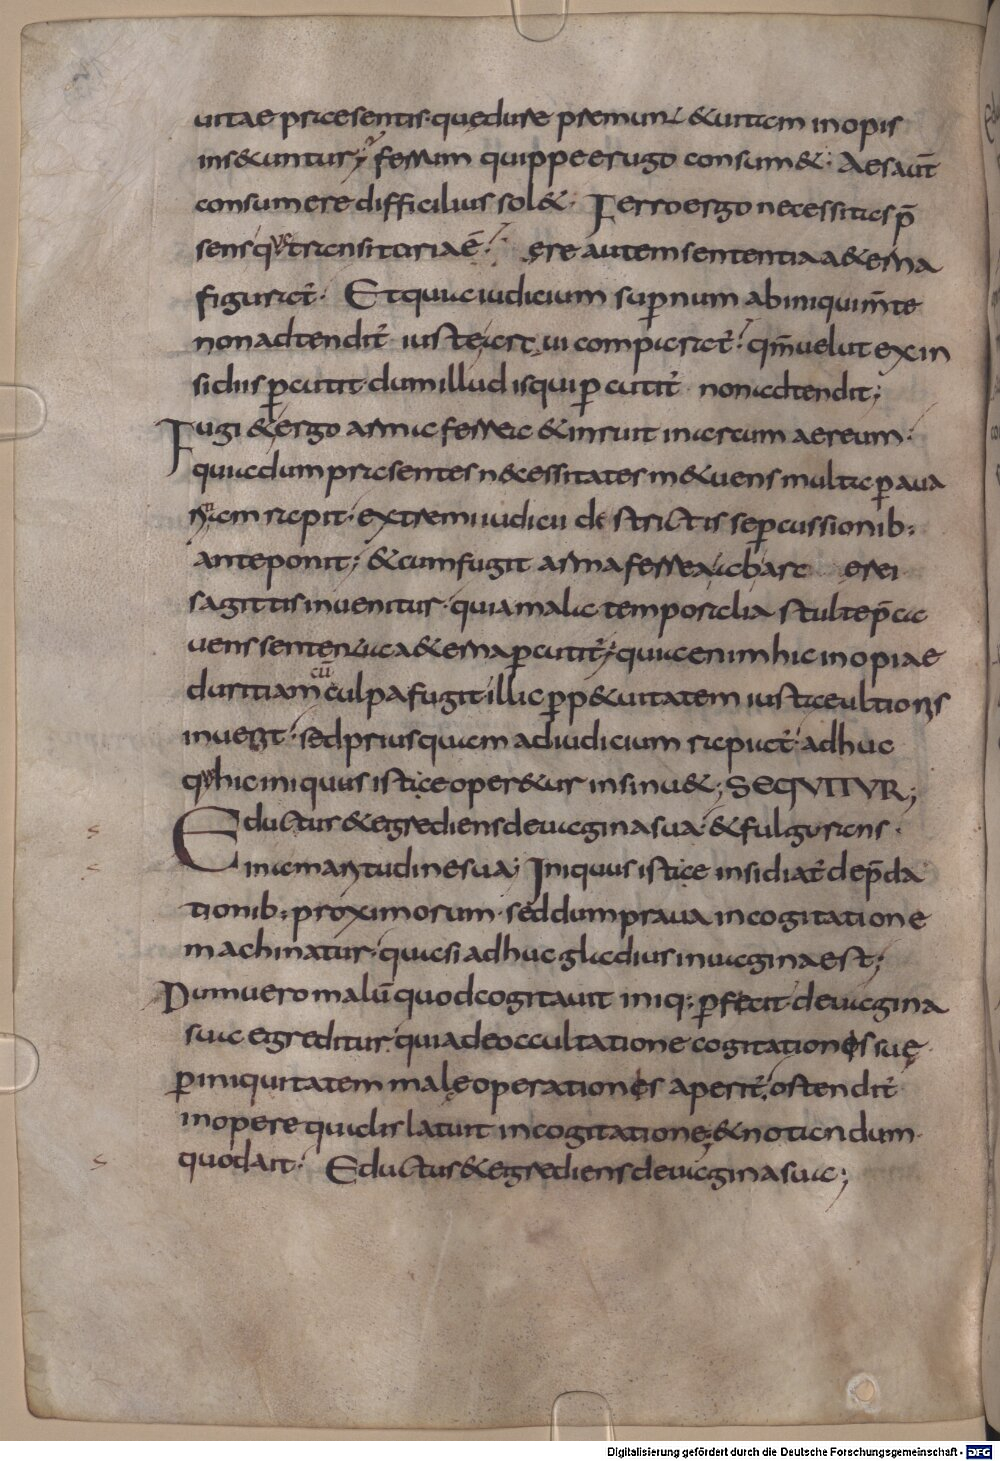 uitae praesentis quę dure premunt & uitam inopis
ins&untur; ferrum quippe erugo consum&. Aes aut̄
consumere difficilius sol&. Ferro ergo necessitas p̄
sens q̇ transitoria ē. ęre autem sententia a&erna
figurat̄. Et quia iudicium sup̲num ab iniqui m̄te
non adtendit̄ iuste arcui comparat̄. qm̄ uelut ex in
sidiis p̲cutit dum illud is qui p̲cutit̄ non adtendit;
Fugi& ergo arma ferrea & inruit in arcum aereum.
qui dum praesentes necessitates m&uens multa p̲ aua
ritiam rapit. extremi iudicii de strictis se p̲cussionib:
anteponit; & cum fugit arma ferrea ab arc erei
sagittis inuenitur. quia mala temporalia stulte p̄ca
uens sententia a&erna p̲cutit̄; qui enim hic inopiae
duritiam cū culpa fugit illic p̲p&uitatem iustae ultionis
inuenit. sed prius quam ad iudicium rapiat̄ adhuc
q̇ hic iniquus iste oper&ur insinu&; SEQUITUR;
Eductus & egrediens de uagina sua. & fulgurans
in amaritudine sua; Iniquus iste insidiat̄ dep̄da
tionib: proximorum. sed dum praua in cogitatione
machinatur. quasi adhuc gladius in uagina est;
Dum uero malū quod cogitauit iniq: p̲fecit. de uagina
sua egreditur. quia de occultatione cogitationis suę
p̲ iniquitatem malę operationis aperit̄. ostendit̄
in opere qualis latuit in cogitatione; & notandum
quod ait. Eductus & egrediens de uagina sua;
Digitalisierung gefördert durch die Deutsche Forschungsgemeinschaft - DFG